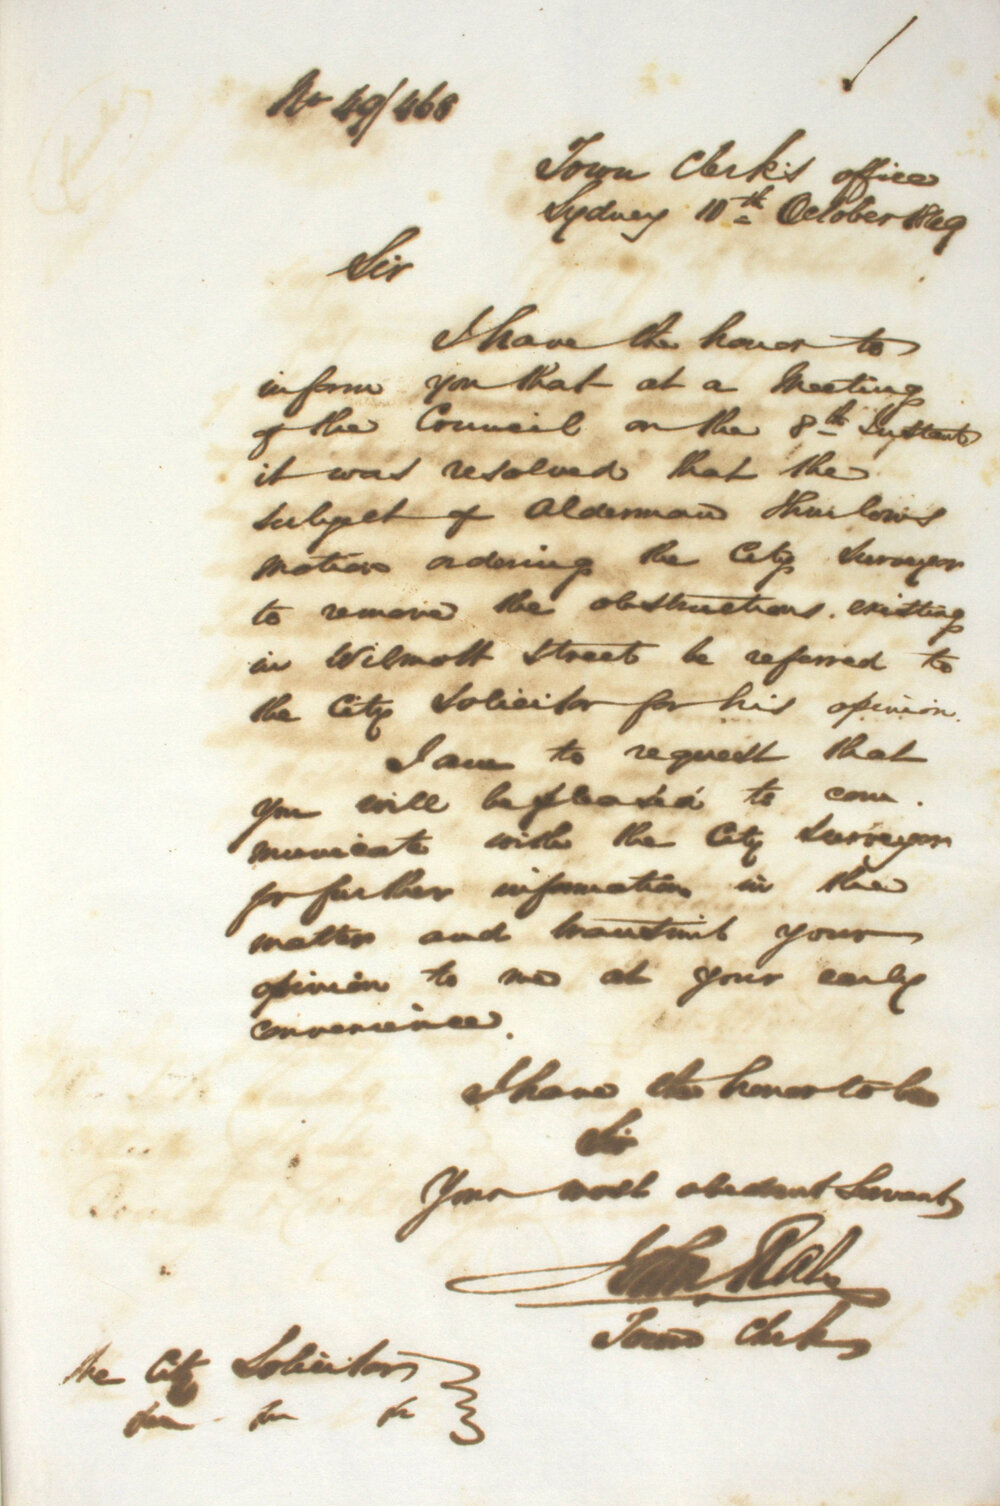 No 49/468
Town Clerk's office
Sydney 10th October 1849
Sir
I have the honor to
inform you that at a Meeting
of the Council on the 8th Instant
it was resolved that the
subject of Alderman Thurlows
motion ordering the City Surveyor
to remove the obstructions existing
in Wilmott Street be referred to
the City Solicitor for his opinion.
I am to request that
you will be pleased to com.
municate with the City Surveyor
for further information in the
matter and transmit your
opinion to me at your early
convenience.
I have the honor to be
Sir
Your most obedient Servant
John Rae
Town Clerk
The City Solicitor